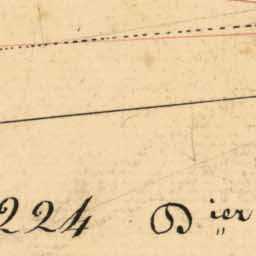 224 Dier